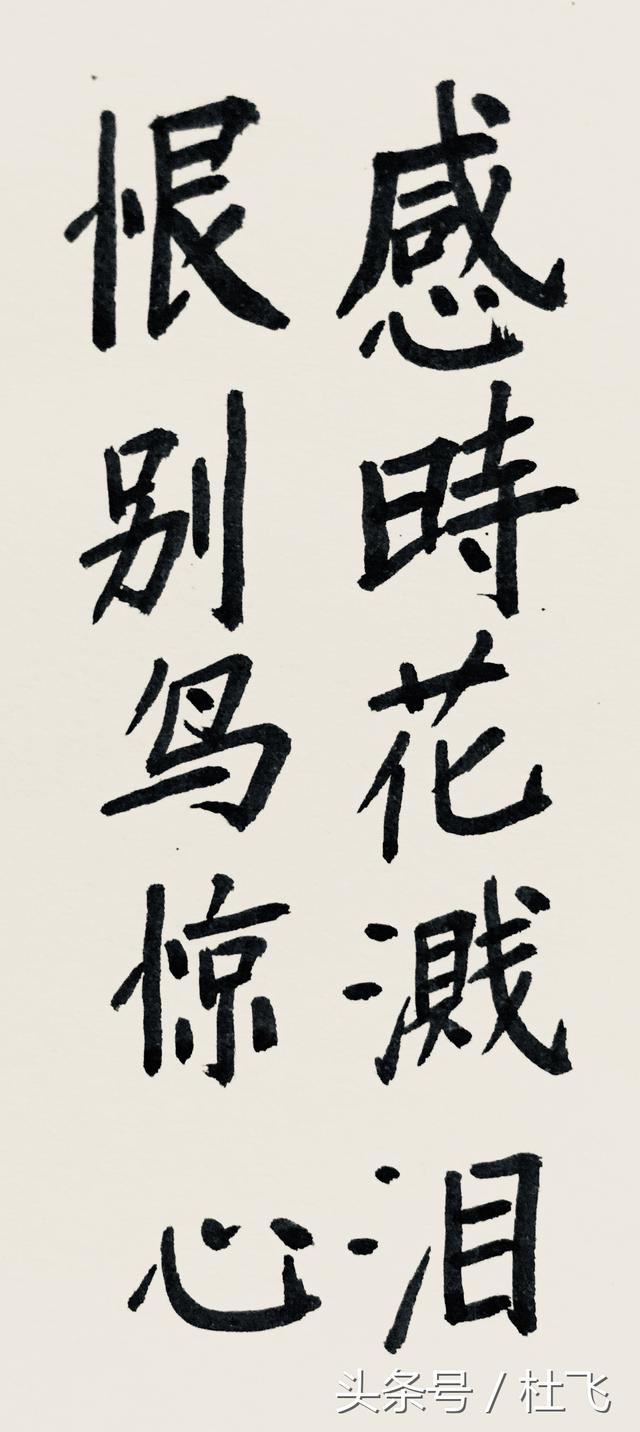 感時花溅泪
恨别鸟惊心
头条号 / 杜飞